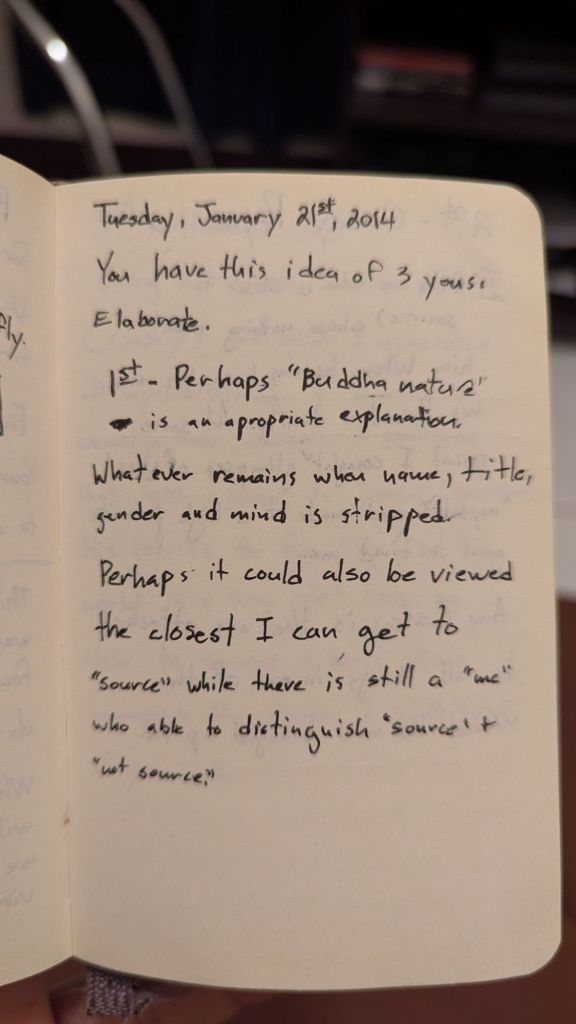 Tuesday, January 21st, 2014
You have this idea of 3 yous.
Elaborate.
1st - Perhaps "Buddha nature"
is an apropriate explanation.
What ever remains when name, title,
gender and mind is stripped.
Perhaps it could also be viewed
the closest I can get to
"source" while there is still a "me"
who able to distinguish "source" +
"not source."
fly.